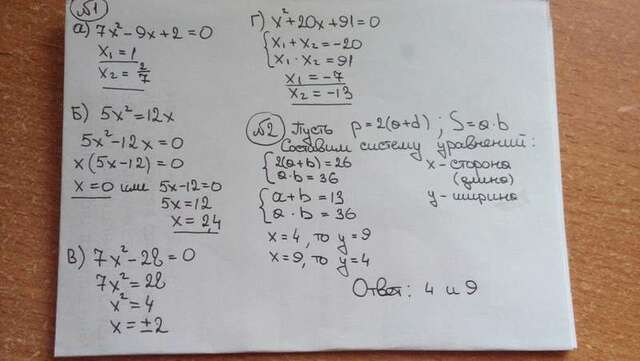 №1
а) 7x² - 9x + 2 = 0
x₁ = 1
x₂ = 2/7
Б) 5x² = 12x
5x² - 12x = 0
x(5x - 12) = 0
x = 0 или 5x - 12 = 0
5x = 12
x = 2,4
В) 7x² - 28 = 0
7x² = 28
x² = 4
x = ±2
Г) x² + 20x + 91 = 0
{ x₁ + x₂ = -20
x₁ · x₂ = 91
x₁ = -7
x₂ = -13
№2 Пусть p = 2(a+d) ; S = a·b
Составим систему уравнений:
{ 2(a+b) = 26
a·b = 36
x - сторона
(длина)
y - ширина
{ a + b = 13
a · b = 36
x = 4, то y = 9
x = 9, то y = 4
Ответ: 4 и 9